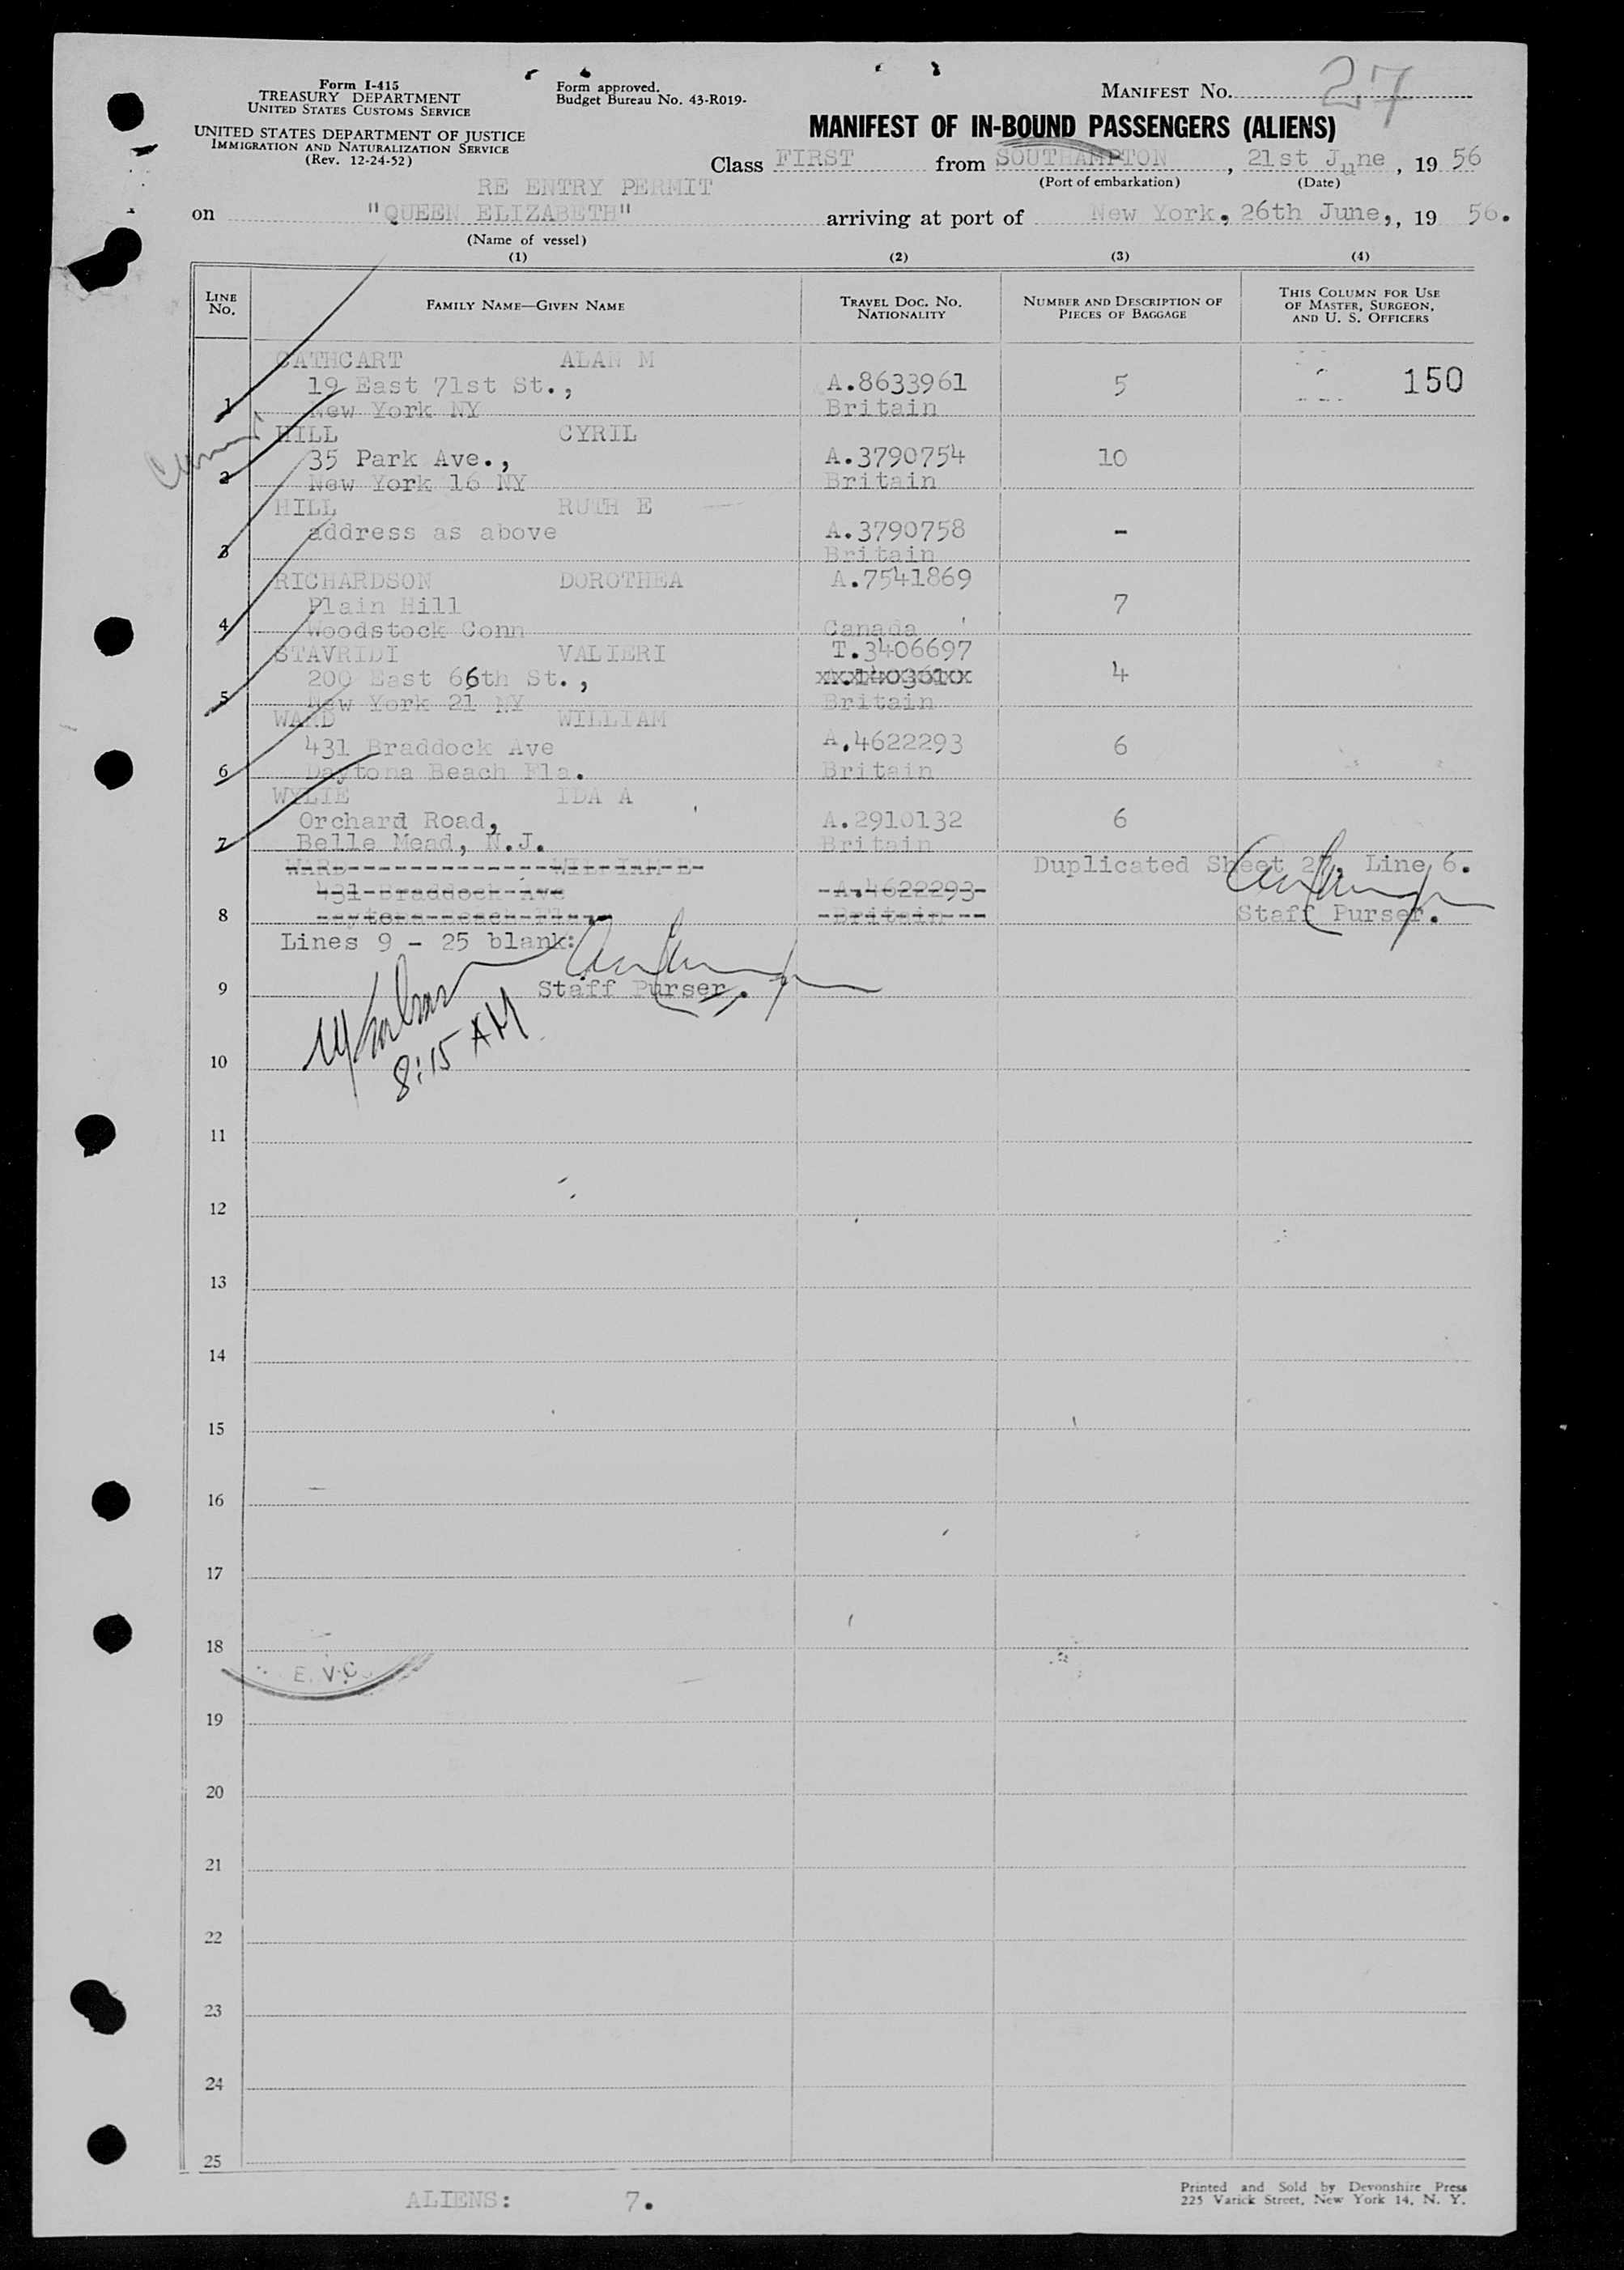 Form I-415
TREASURY DEPARTMENT
UNITED STATES CUSTOMS SERVICE
UNITED STATES DEPARTMENT OF JUSTICE
IMMIGRATION AND NATURALIZATION SERVICE
(Rev. 12-24-52)
Form approved.
Budget Bureau No. 43-R019-
MANIFEST NO. 27
MANIFEST OF IN-BOUND PASSENGERS (ALIENS)
Class FIRST from SOUTHAMPTON, 21st June, 19 56
(Port of embarkation) (Date)
RE ENTRY PERMIT
on "QUEEN ELIZABETH" arriving at port of New York, 26th June,, 19 56.
(Name of vessel)
(1) (2) (3) (4)
LINE NO. FAMILY NAME—GIVEN NAME TRAVEL DOC. NO. NATIONALITY NUMBER AND DESCRIPTION OF PIECES OF BAGGAGE THIS COLUMN FOR USE OF MASTER, SURGEON, AND U. S. OFFICERS
CATHCART ALAN M
19 East 71st St., A.8633961 5 150
1 New York NY Britain
HILL CYRIL
35 Park Ave., A.3790754 10
2 New York 16 NY Britain
HILL RUTH E
address as above A.3790758 -
3 Britain
RICHARDSON DOROTHEA A.7541869
Plain Hill 7
4 Woodstock Conn Canada
STAVRIDI VALIERI T.3406697
200 East 66th St., 4
5 New York 21 NY Britain
WARD WILLIAM
431 Braddock Ave A.4622293 6
6 Daytona Beach Fla. Britain
WYLIE IDA A
Orchard Road, A.2910132 6
7 Belle Mead, N.J. Britain
WARD WILLIAM E Duplicated Sheet 27, Line 6.
431 Braddock Ave A.4622293
8 Daytona Beach Fla Britain Staff Purser.
Lines 9 - 25 blank:
9 Staff Purser.
8:15 AM
10
11
12
13
14
15
16
17
18
E. V.C.
19
20
21
22
23
24
25
ALIENS: 7.
Printed and Sold by Devonshire Press
225 Varick Street, New York 14, N. Y.